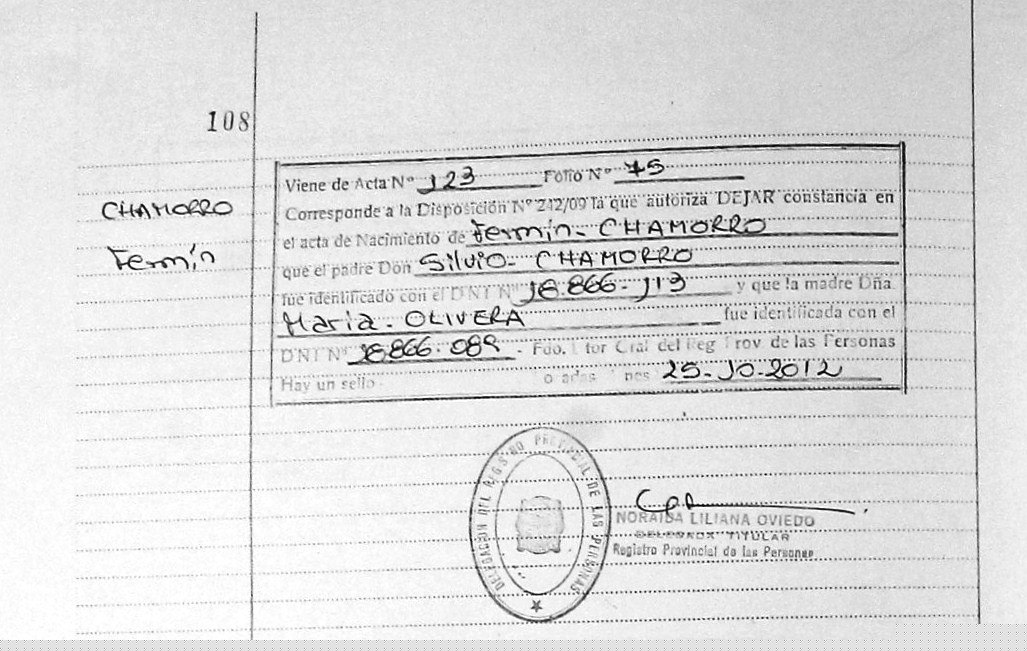 108
CHAMORRO
Fermín
Viene de Acta Nº 123 Folio Nº 75
Corresponde a la Disposición Nº 242/09 la que autoriza DEJAR constancia en
el acta de Nacimiento de Fermín - CHAMORRO
que el padre Don Silvio - CHAMORRO
fue identificado con el DNI Nº 18.866.113 y que la madre Dña
María - OLIVERA fue identificada con el
DNI Nº 18866.089 - Fdo. Gral del Reg Prov de las Personas
Hay un sello 25-10-2012
DELEGACION DEL REGISTRO PROVINCIAL DE LAS PERSONAS
NORAIDA LILIANA OVIEDO
DELEGADA TITULAR
Registro Provincial de las Personas